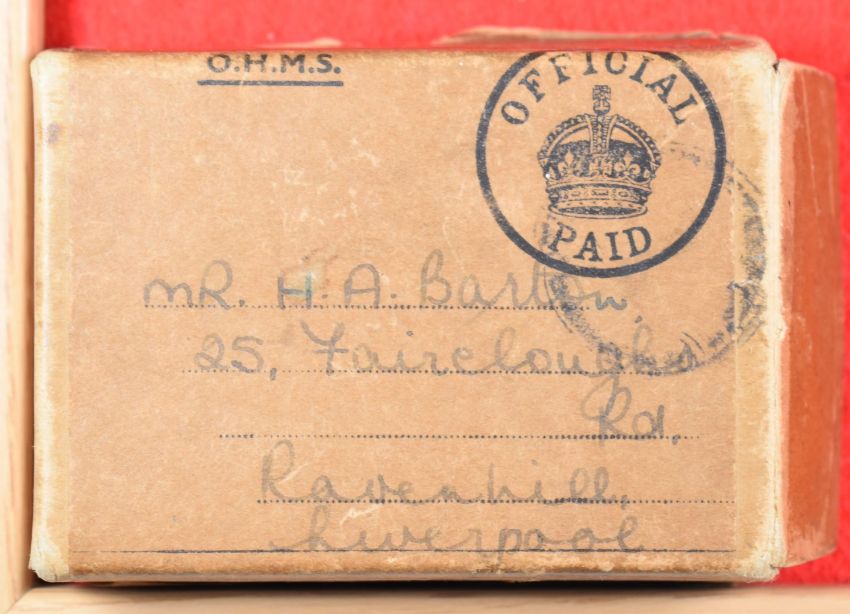 O.H.M.S.
OFFICIAL
PAID
MR. H. A. Barton,
25, Fairclough
Rd,
Ravenhill,
Liverpool